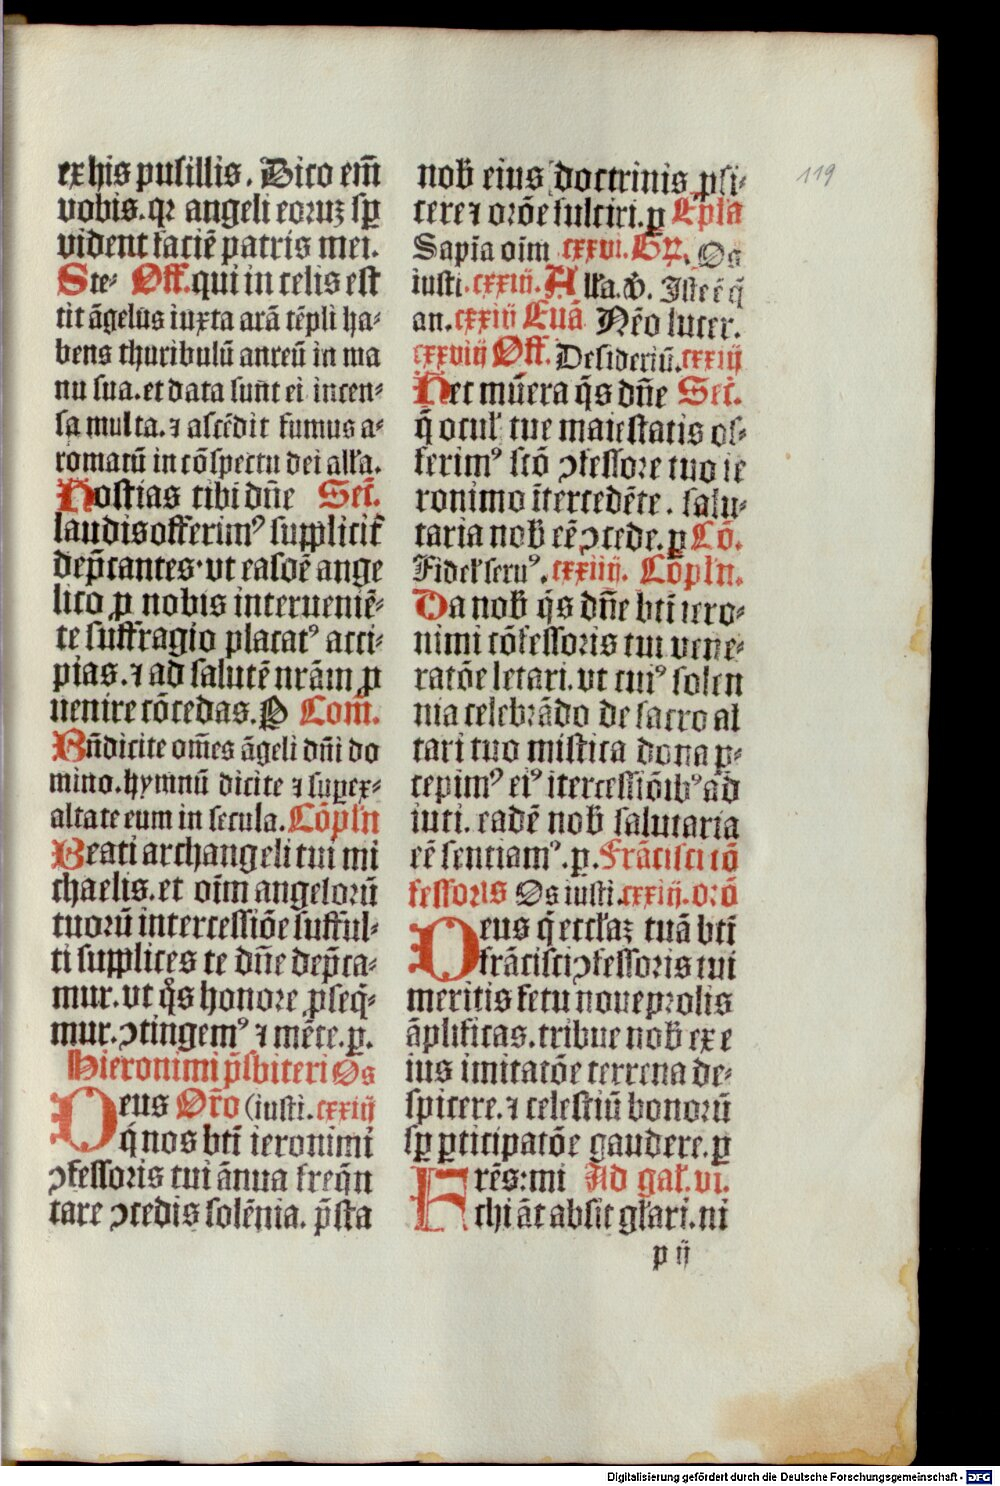 ex his pusillis. Dico em̄
vobis. qꝛ angeli eoruꝫ sꝑ
vident faciē patris mei.
Ste- Off. qui in celis est
tit āgelus iuxta arā tēpli ha-
bens thuribulū aureū in ma
nu sua. et data sunt ei incen-
sa multa. ⁊ ascēdit fumus a-
romatū in cōspectu dei alľa.
Hostias tibi dn̄e Sec̄.
laudis offerimꝰ supplicit̄
dep̄cantes. vt easdē ange
lico ꝓ nobis interueniē-
te suffragio placatꝰ acci-
pias. ⁊ ad salutē nrām ꝓ
uenire cōcedas. P Com̄.
Bn̄dicite om̄es āgeli dn̄i do
mino. hymnū dicite ⁊ suꝑex-
altate eum in secula. Cōpľn
Beati archangeli tui mi
chaelis. et oīm angelorū
tuorū intercessiōe sufful-
ti supplices te dn̄e dep̄ca-
mur. vt q̄s honore ꝓseq̄-
mur. ꝯtingemꝰ ⁊ mēte. ꝑ.
Hieronimi p̄sbiteri Os
Deus Or̄o (iusti. cxxiij
q̄ nos bti̅ ieronimi
ꝯfessoris tui ānua freq̄n
tare ꝯcedis solēnia. p̄sta
nob̄ eius doctrinis ꝓfi-
cere ⁊ orōe fulciri. ꝑ Epľa
Sapīa oīm cxxvi. Gꝛ̄. Os
iusti. cxxiij. Alľa. v̄. Iste ē q̄
an. cxxiij Euā Nēo lucer.
cxxviij Off. Desideriū. cxxiij
Hec mūera q̄s dn̄e Sec̄.
q̄ ocuľ tue maiestatis of-
ferimꝰ scō ꝯfessore tuo ie
ronimo īterced̄ēte. salu-
taria nob̄ eē ꝯcede. ꝑ Cō.
Fideľ seruꝰ. cxxiiij. Cōpľn.
Da nob̄ q̄s dn̄e bti̅ iero-
nimi cōfessoris tui vene-
ratōe letari. vt cuiꝰ solen
nia celebrādo de sacro al
tari tuo mistica dona ꝑ-
cepimꝰ eiꝰ itercessiōibꝰ ad
iuti. eadē nob̄ salutaria
eē sentiamꝰ. ꝑ. Frācisci cō
fessoris Os iusti. cxxiij. orō
Deus q̄ eccľaꝫ tuā bti̅
frācisci ꝯfessoris tui
meritis fetu noue prolis
āplificas. tribue nob̄ ex e
ius imitatōe terrena de-
spicere. ⁊ celestiū bonorū
sꝑ ꝑticipatōe gaudere. ꝑ
Frēs: mi Ad gaľ. vi.
chi āt absit gľari. ni
p ij
119
Digitalisierung gefördert durch die Deutsche Forschungsgemeinschaft - DFG